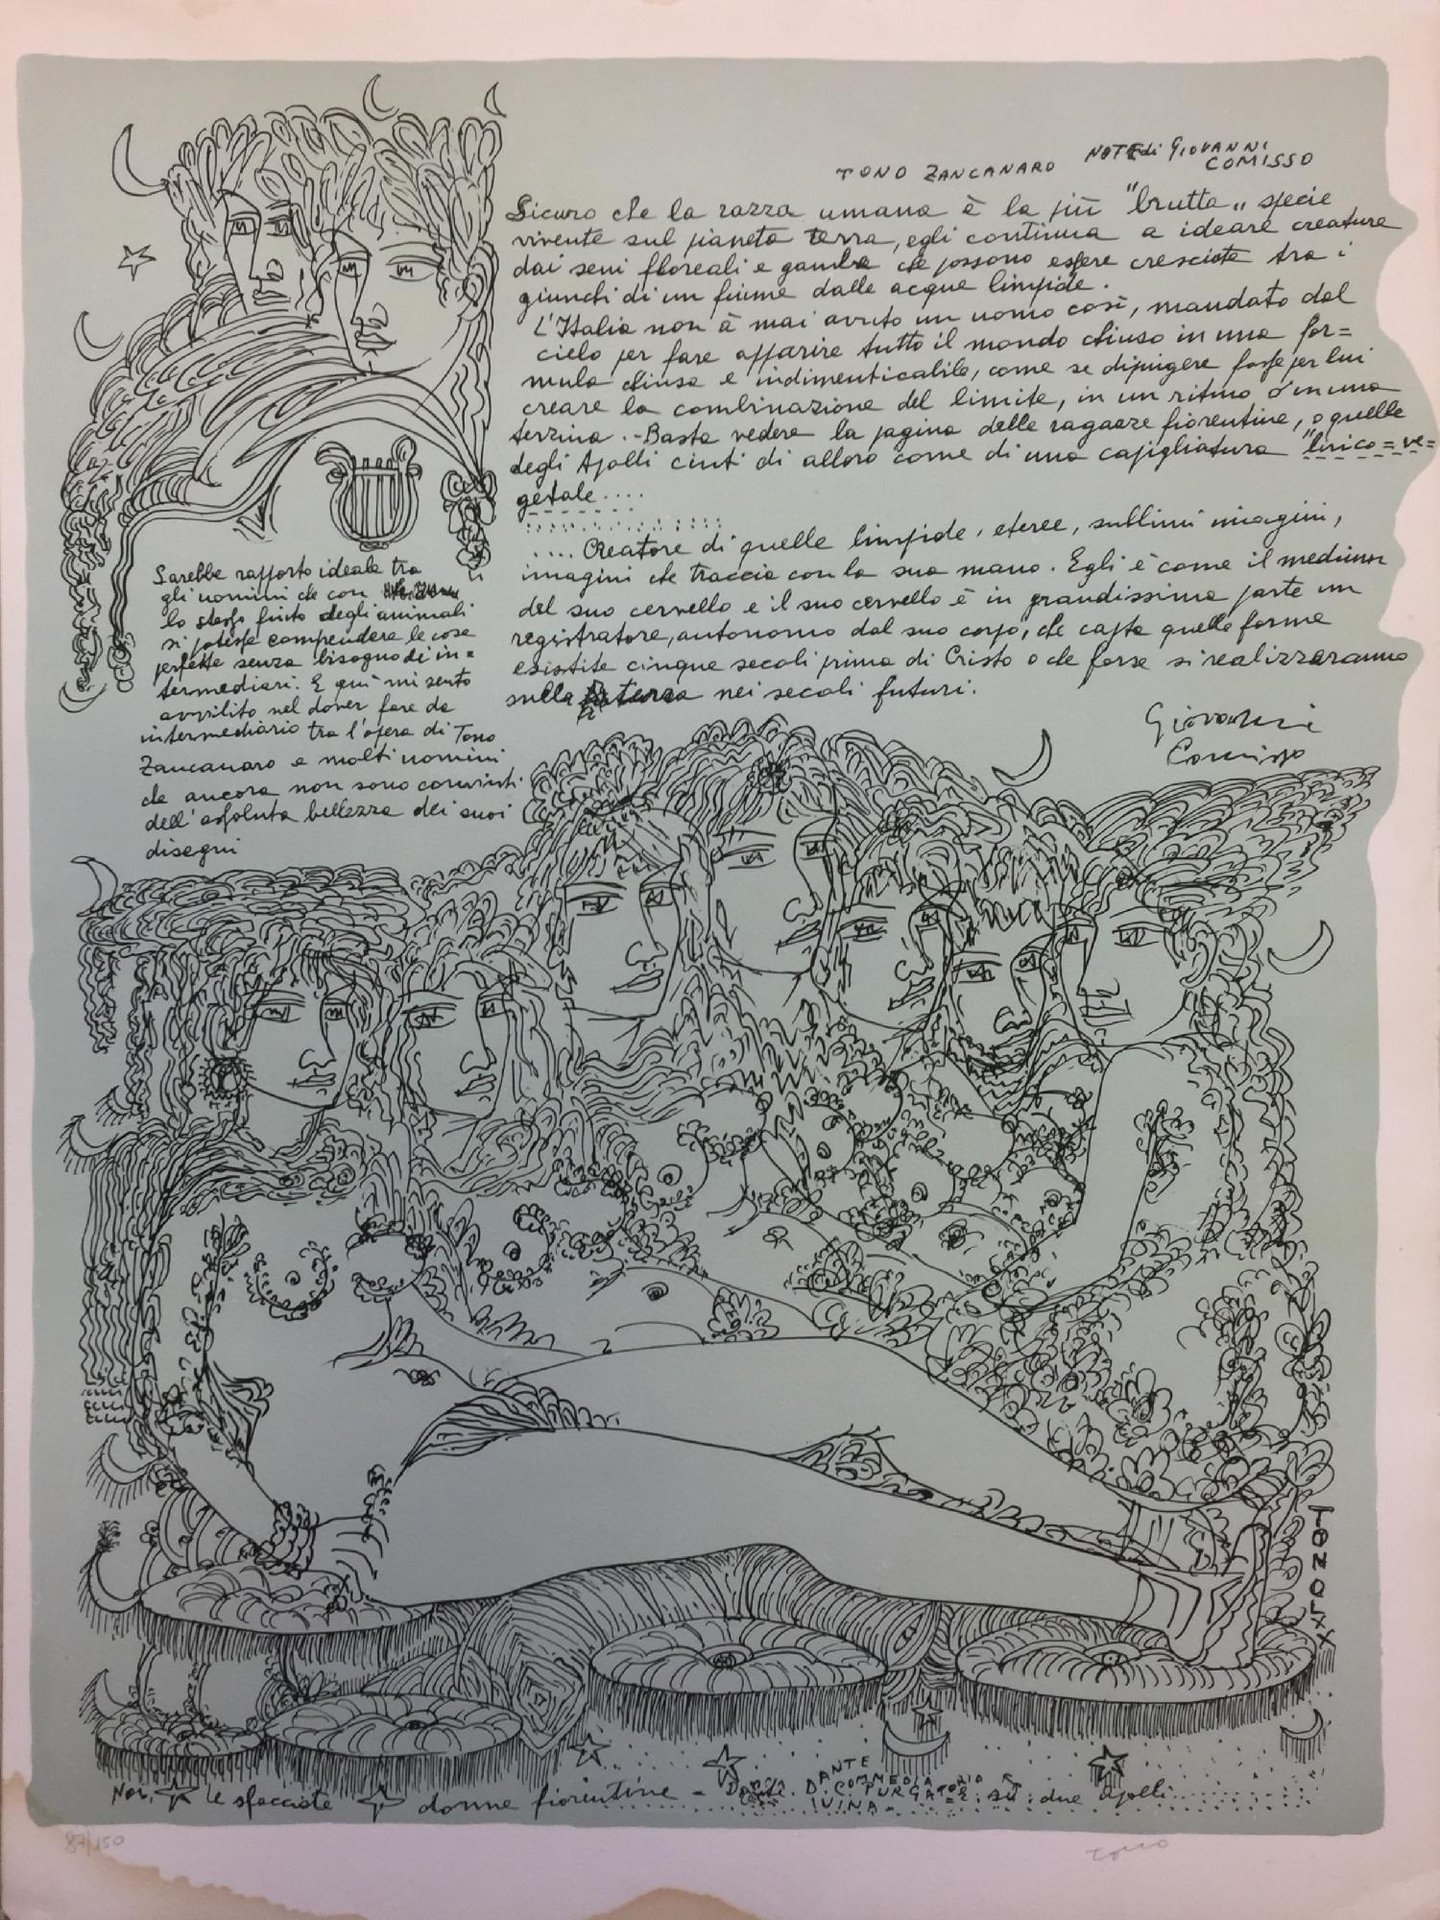 TONO ZANCANARO NOTE di GIOVANNI
COMISSO
Sicuro che la razza umana è la più "brutta" specie
vivente sul pianeta terra, egli continua a ideare creature
dai seni floreali e gambe che possono essere cresciute tra i
giunchi di un fiume dalle acque limpide.
L'Italia non à mai avuto un uomo così, mandato dal
cielo per fare apparire tutto il mondo chiuso in una for=
mula chiusa e indimenticabile, come se dipingere fosse per lui
creare la combinazione del limite, in un ritmo o in una
terzina.- Basta vedere la pagina delle ragazze fiorentine, o quelle
degli Apolli cinti di alloro come di una capigliatura "lirico=ve=
getale....
.... Creatore di quelle limpide, eteree, sublimi imagini,
imagini che traccia con la sua mano. Egli è come il medium
del suo cervello e il suo cervello è in grandissima parte un
registratore, autonomo dal suo corpo, che capta quelle forme
esistite cinque secoli prima di Cristo o che forse si realizzeranno
sulla terra nei secoli futuri.
Giovanni
Comisso
Sarebbe rapporto ideale tra
gli uomini che con
lo stesso fiuto degli animali
si potesse comprendere le cose
perfette senza bisogno di in=
termediari. E qui mi sento
avvilito nel dover fare da
intermediario tra l'opera di Tono
Zancanaro e molti uomini
che ancora non sono convinti
dell'assoluta bellezza dei suoi
disegni
TONO LXX
Non, le sfacciate donne fiorentine - DANTE D. COMMEDIA PURGATORIO
IVINA - due Apolli
87/150
Tono